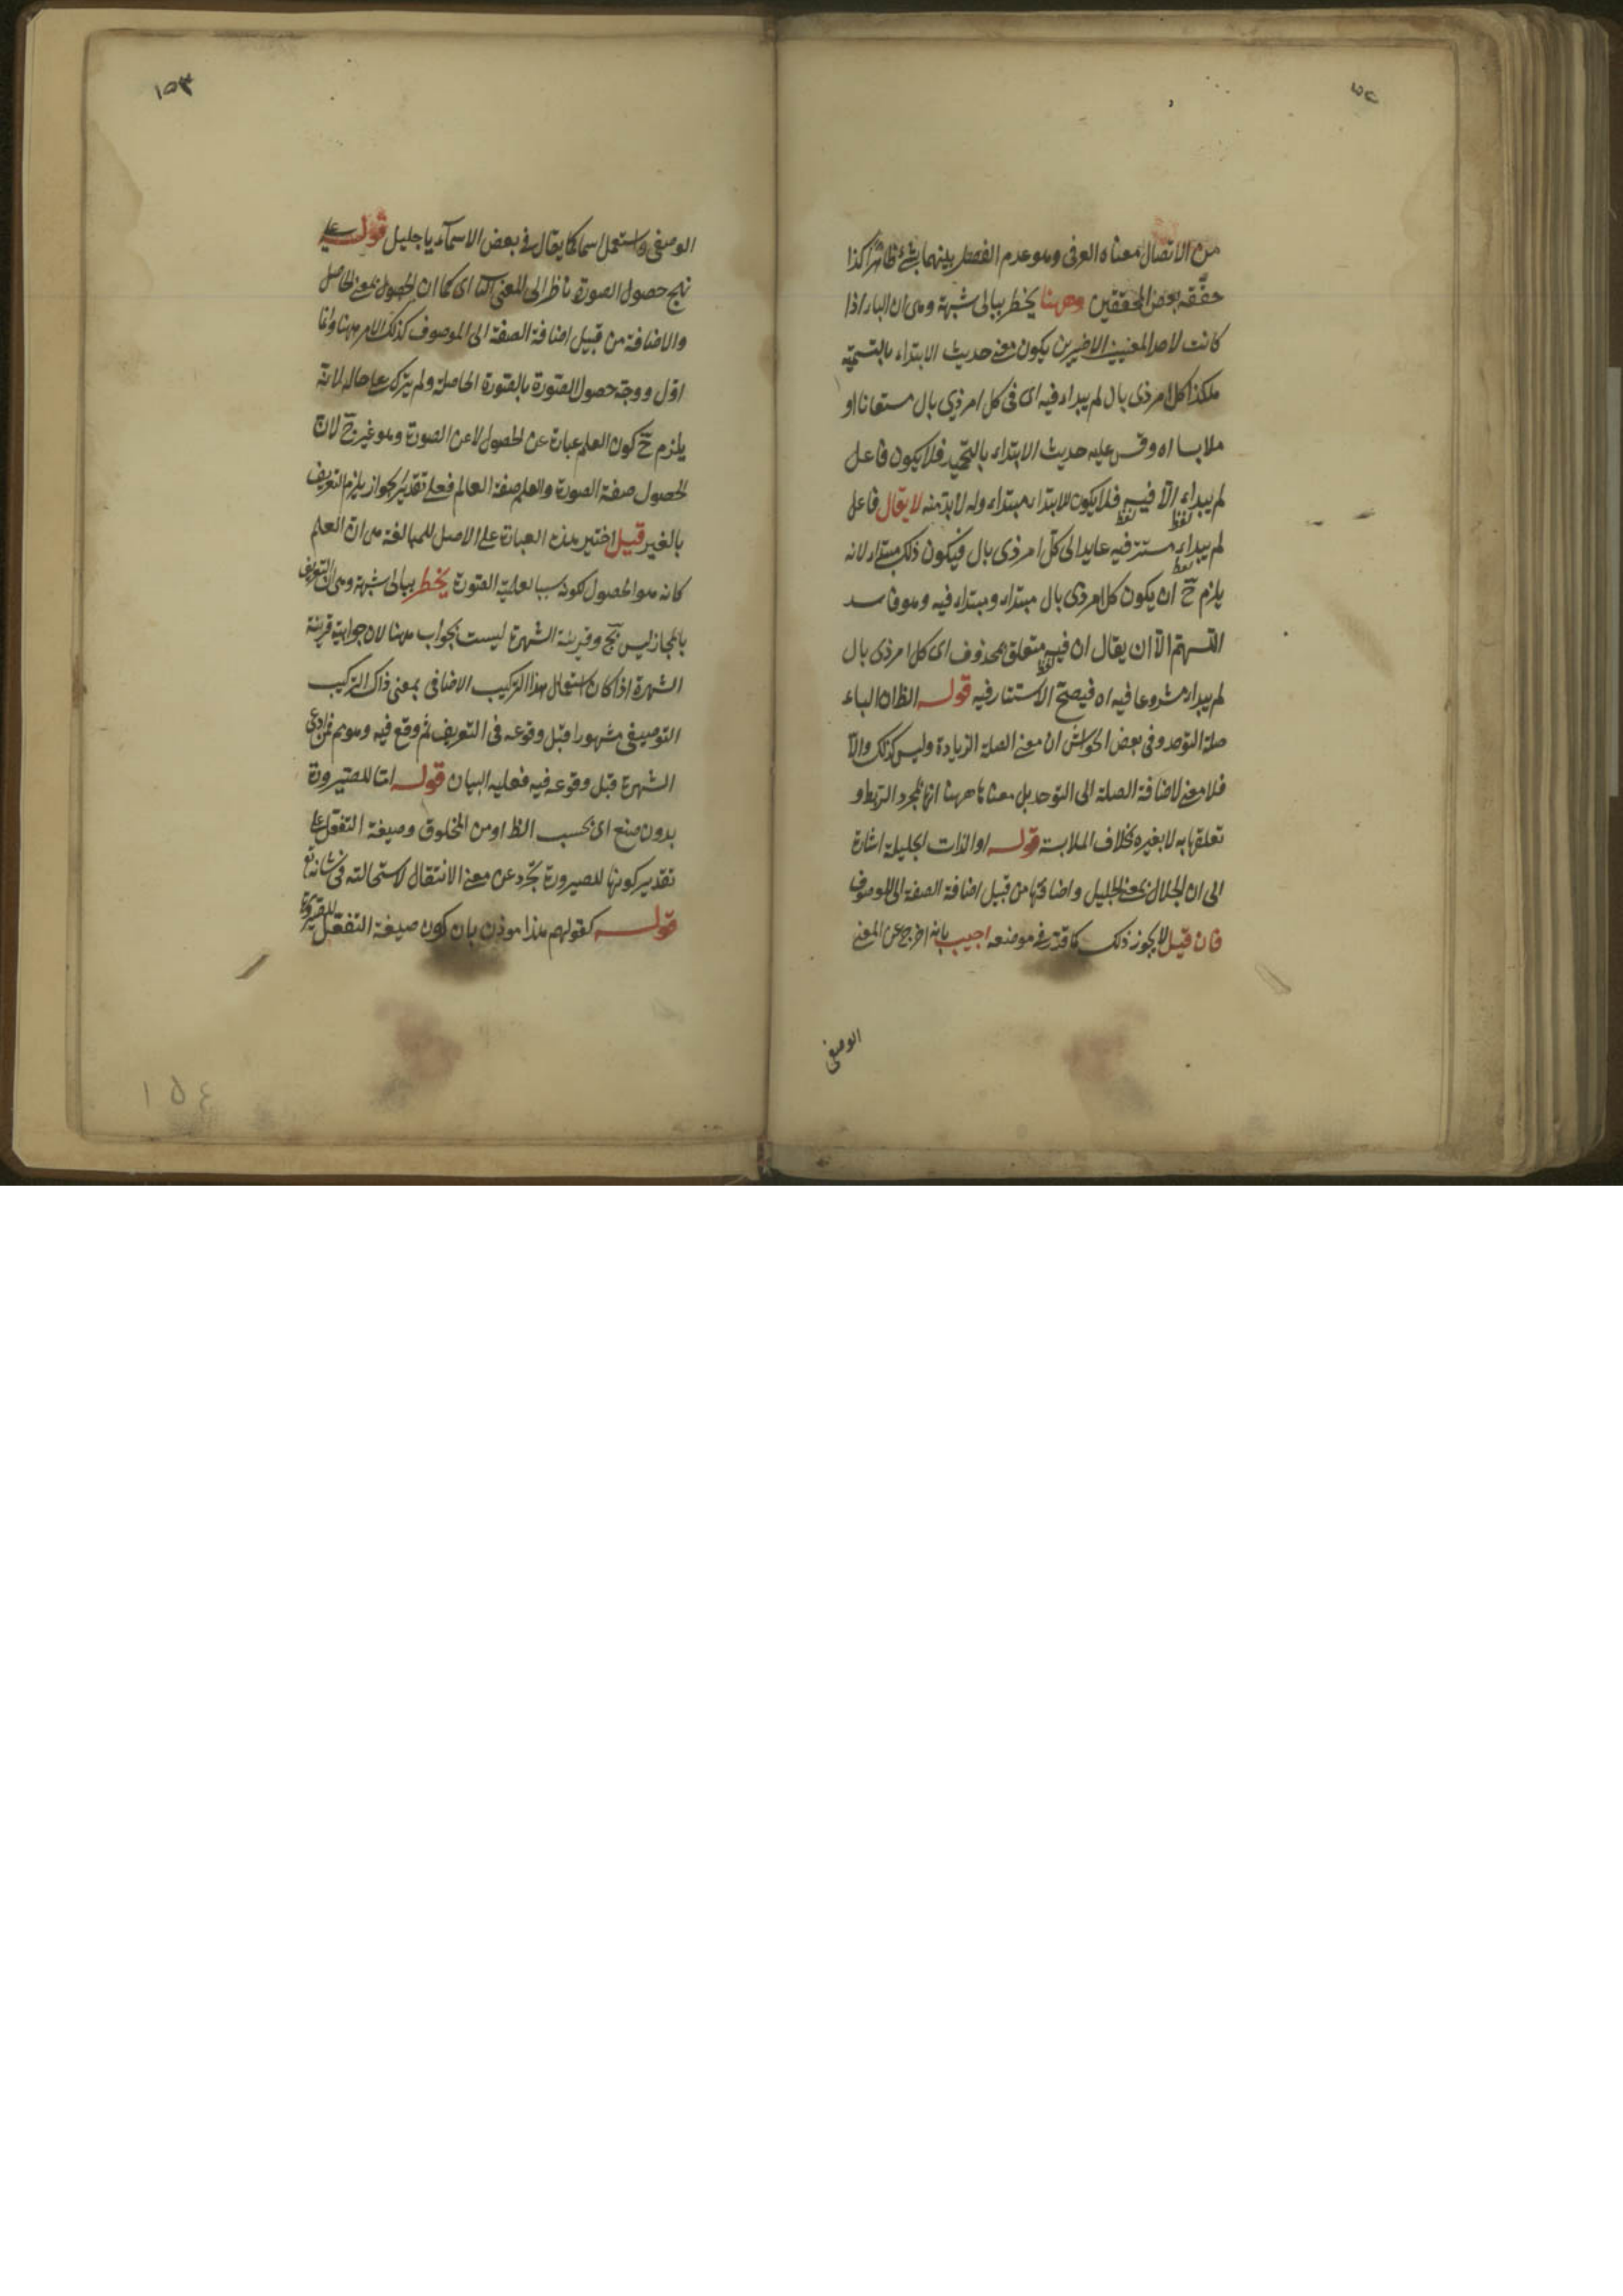 من الاتصال معناه العرفى وهو عدم الفصل بينهما بشئ ظاهرا كذا
حققه بعض المحققين وههنا يخطر ببالى شبهة وهى ان الباء اذا
كانت لاحد المعنيين الاخيرين يكون معنى حديث الابتداء بالتسمية
هكذا كل امر ذى بال لم يبداء فيه اى فى كل امر ذى بال مستعانا او
ملابسا اه وقس عليه حديث الابتداء بالتحميد فلا يكون فاعل
لم يبداء الا فيه فلا يكون للابتداء مبتداء وله لا بد منه لا يقال فاعل
لفظ لفظ
لم يبداء مستتر فيه عايد الى كل امر ذى بال فيكون ذلك مبتداء لانه
لفظ
يلزم ح ان يكون كل امر ذى بال مبتداء ومبتداء فيه وهو فاسد
اللهم الا ان يقال ان فيه متعلق بمحذوف اى كل امر ذى بال
لفظ
لم يبداء مشروعا فيه اه فيصح الاستتار فيه قوله الظ ان الباء
صلة التوحد وفى بعض الحواش ان معنى الصلة الزيادة وليس كذلك والا
فلا معنى لاضافة الصلة الى التوحد بل معناها ههنا انها لمجرد الربط و
تعلقها به لا بغيره بخلاف الملابسة قوله او الذات الجليلة اشارة
الى ان الجلال بمعنى الجليل واضافتها من قبيل اضافة الصفة الى الموصوف
فان قيل لا يجوز ذلك كما قرر فى موضعه اجيب بانه اخرج عن المعنى
الوصفى
١٥٣
الوصفى واستعمل اسما كما يقال فى بعض الاسماء يا جليل قوله على
نهج حصول الصورة ناظر الى المعنى الثا اى كما ان الحصول بمعنى الحاصل
والاضافة من قبيل اضافة الصفة الى الموصوف كذلك الامر ههنا وانما
اول ووجه حصول الصورة بالصورة الحاصلة ولم يترك على حاله لانه
يلزم ح كون العلم عبارة عن الحصول لا عن الصورة وهو غير صح لان
الحصول صفة الصورة والعلم صفة العالم فعلى تقدير الجواز يلزم التعريف
بالغير قيل اختير هذه العبارة على الاصل للمبالغة من ان العلم
كانه هو الحصول لكونه سببا لعلمية الصورة يخطر ببالى شبهة وهى ان التعريف
بالمجاز ليس بصح وقرينة الشهرة ليست بجواب ههنا لان جوابية قرينة
الشهرة اذا كان استعمال هذا التركيب الاضافى بمعنى ذاك التركيب
التوصيفى مشهورا قبل وقوعه فى التعريف ثم وقع فيه وهو مم فمن ادعى
الشهرة قبل وقوعه فيه فعليه البيان قوله اما للصيرورة
بدون صنع اى بحسب الظ او من المخلوق وصيغة التفعل على
تقدير كونها للصيرورة تجرد عن معنى الانتقال لاستحالته فى شانه تع
قوله كقولهم هذا موذن بان كون صيغة التفعل للصيرورة
١٥٤